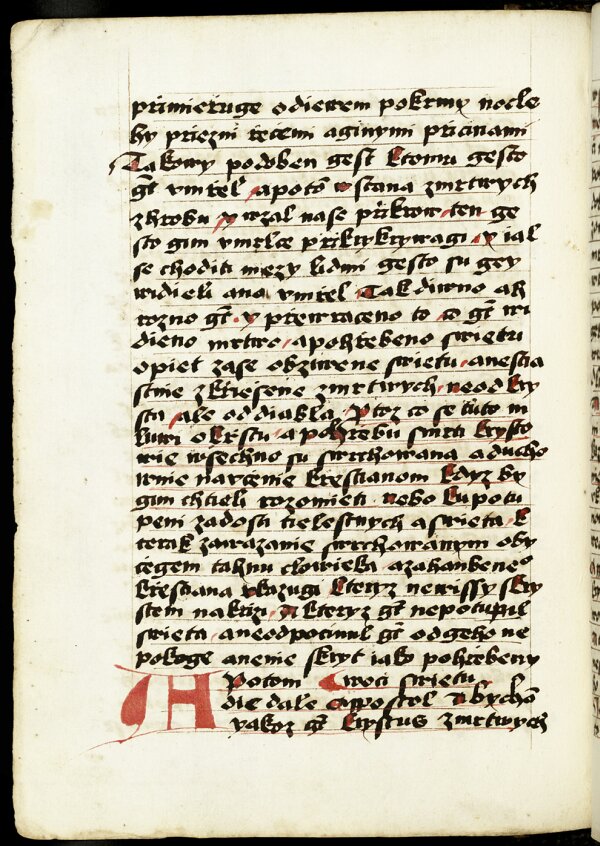 przimieruge odiewem pokrmy nocle
hy priezni recemi aginymi pricinami
Takowy podoben gest ktomu gesto
gt vmrel apotō wstana zmrtwych
zhrobu y wzal nase prikrow ten ge
sto gim vmrlce prikrykrywagi y ial
se choditi mezy lidmi gesto su gey
widieli ana vmrel Tak diwno ak
rozno gt y prewraceno to co gt wi
dieno mrtwo apohrebeno swietu
opiet zase obziwene swietu anestia
stnie zkriesene zmrtwych neod kry
sta ale oddiabla Ptoz co se tuto m
luwi okrstu apohrebu smrti krysto
wie wsechno su swrchowana aducho
wnie narzenie krestianom kdyz by
gim chtieli rozomieti nebo ku potu
peni zadosti tielestnych aswieta k
terak zawazanie swrchowanym oby
cegem tahnu clowieka azahanbene°
krestiana vkazugi kteryz newissy skry
stem nakrizi a kteryz gt nepotupil
swieta aneodpocinul gt odgeho ne
pokoge anenie skryt iako pohrebeny
A Potom woci swietu
die dale apostol Abychō
yakoz gt krystus zmrtwych